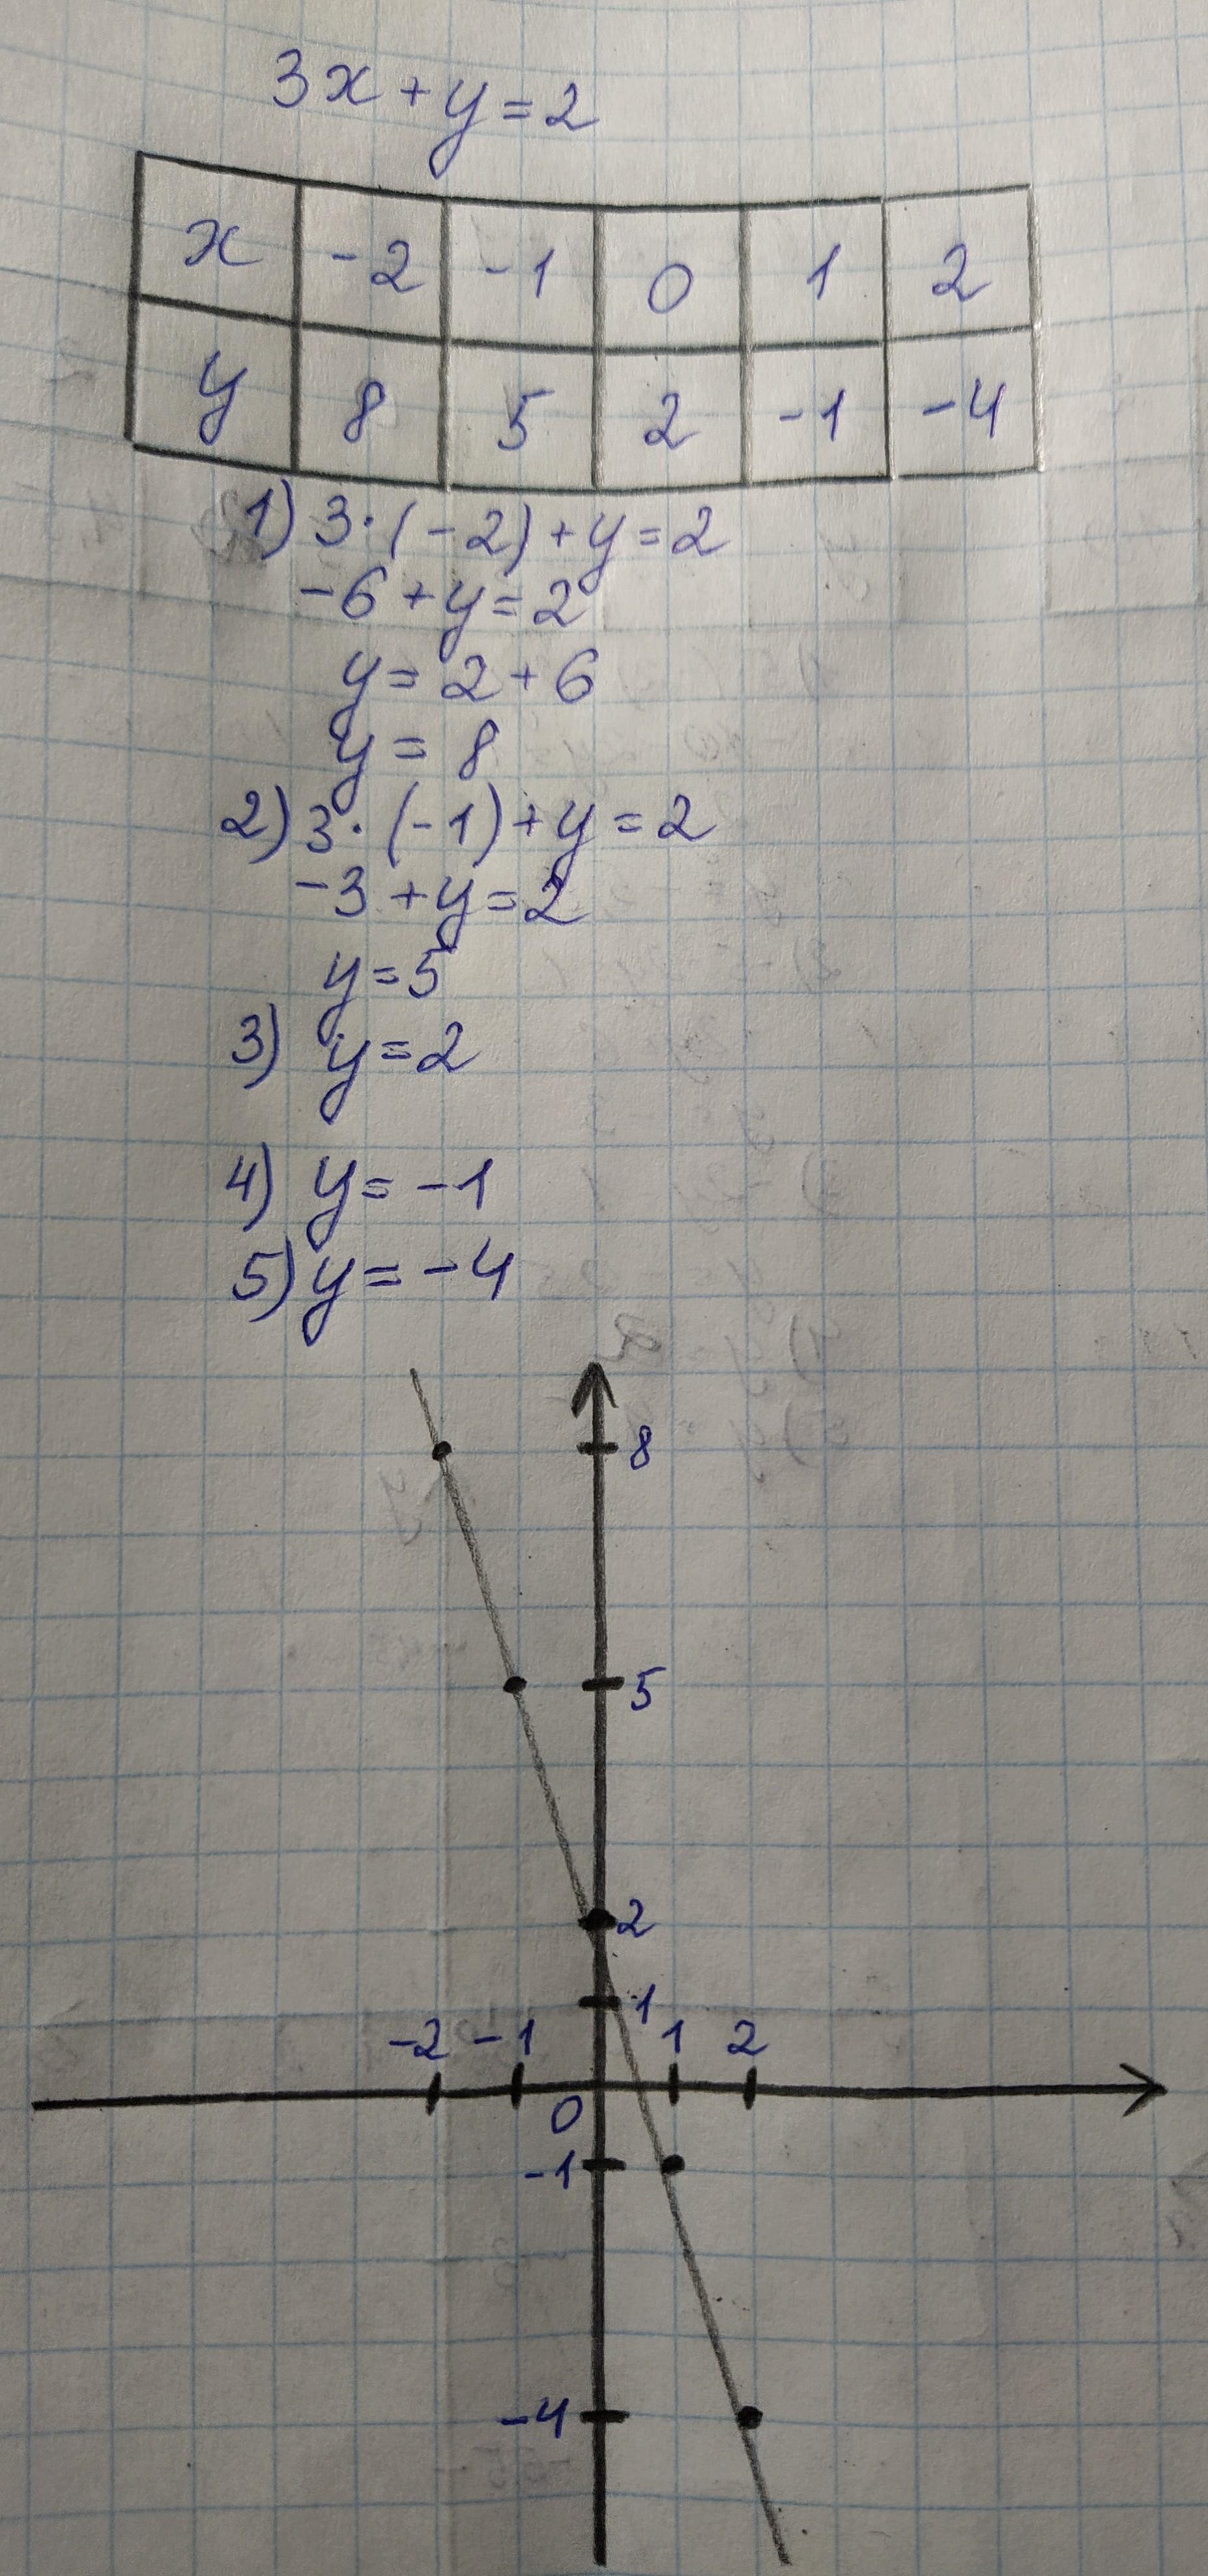 3x+y=2
x -2 -1 0 1 2
y 8 5 2 -1 -4
1) 3·(-2)+y=2
-6+y=2
y=2+6
y=8
2) 3·(-1)+y=2
-3+y=2
y=5
3) y=2
4) y=-1
5) y=-4
8
5
2
1
-2 -1 1 2
0
-1
-4